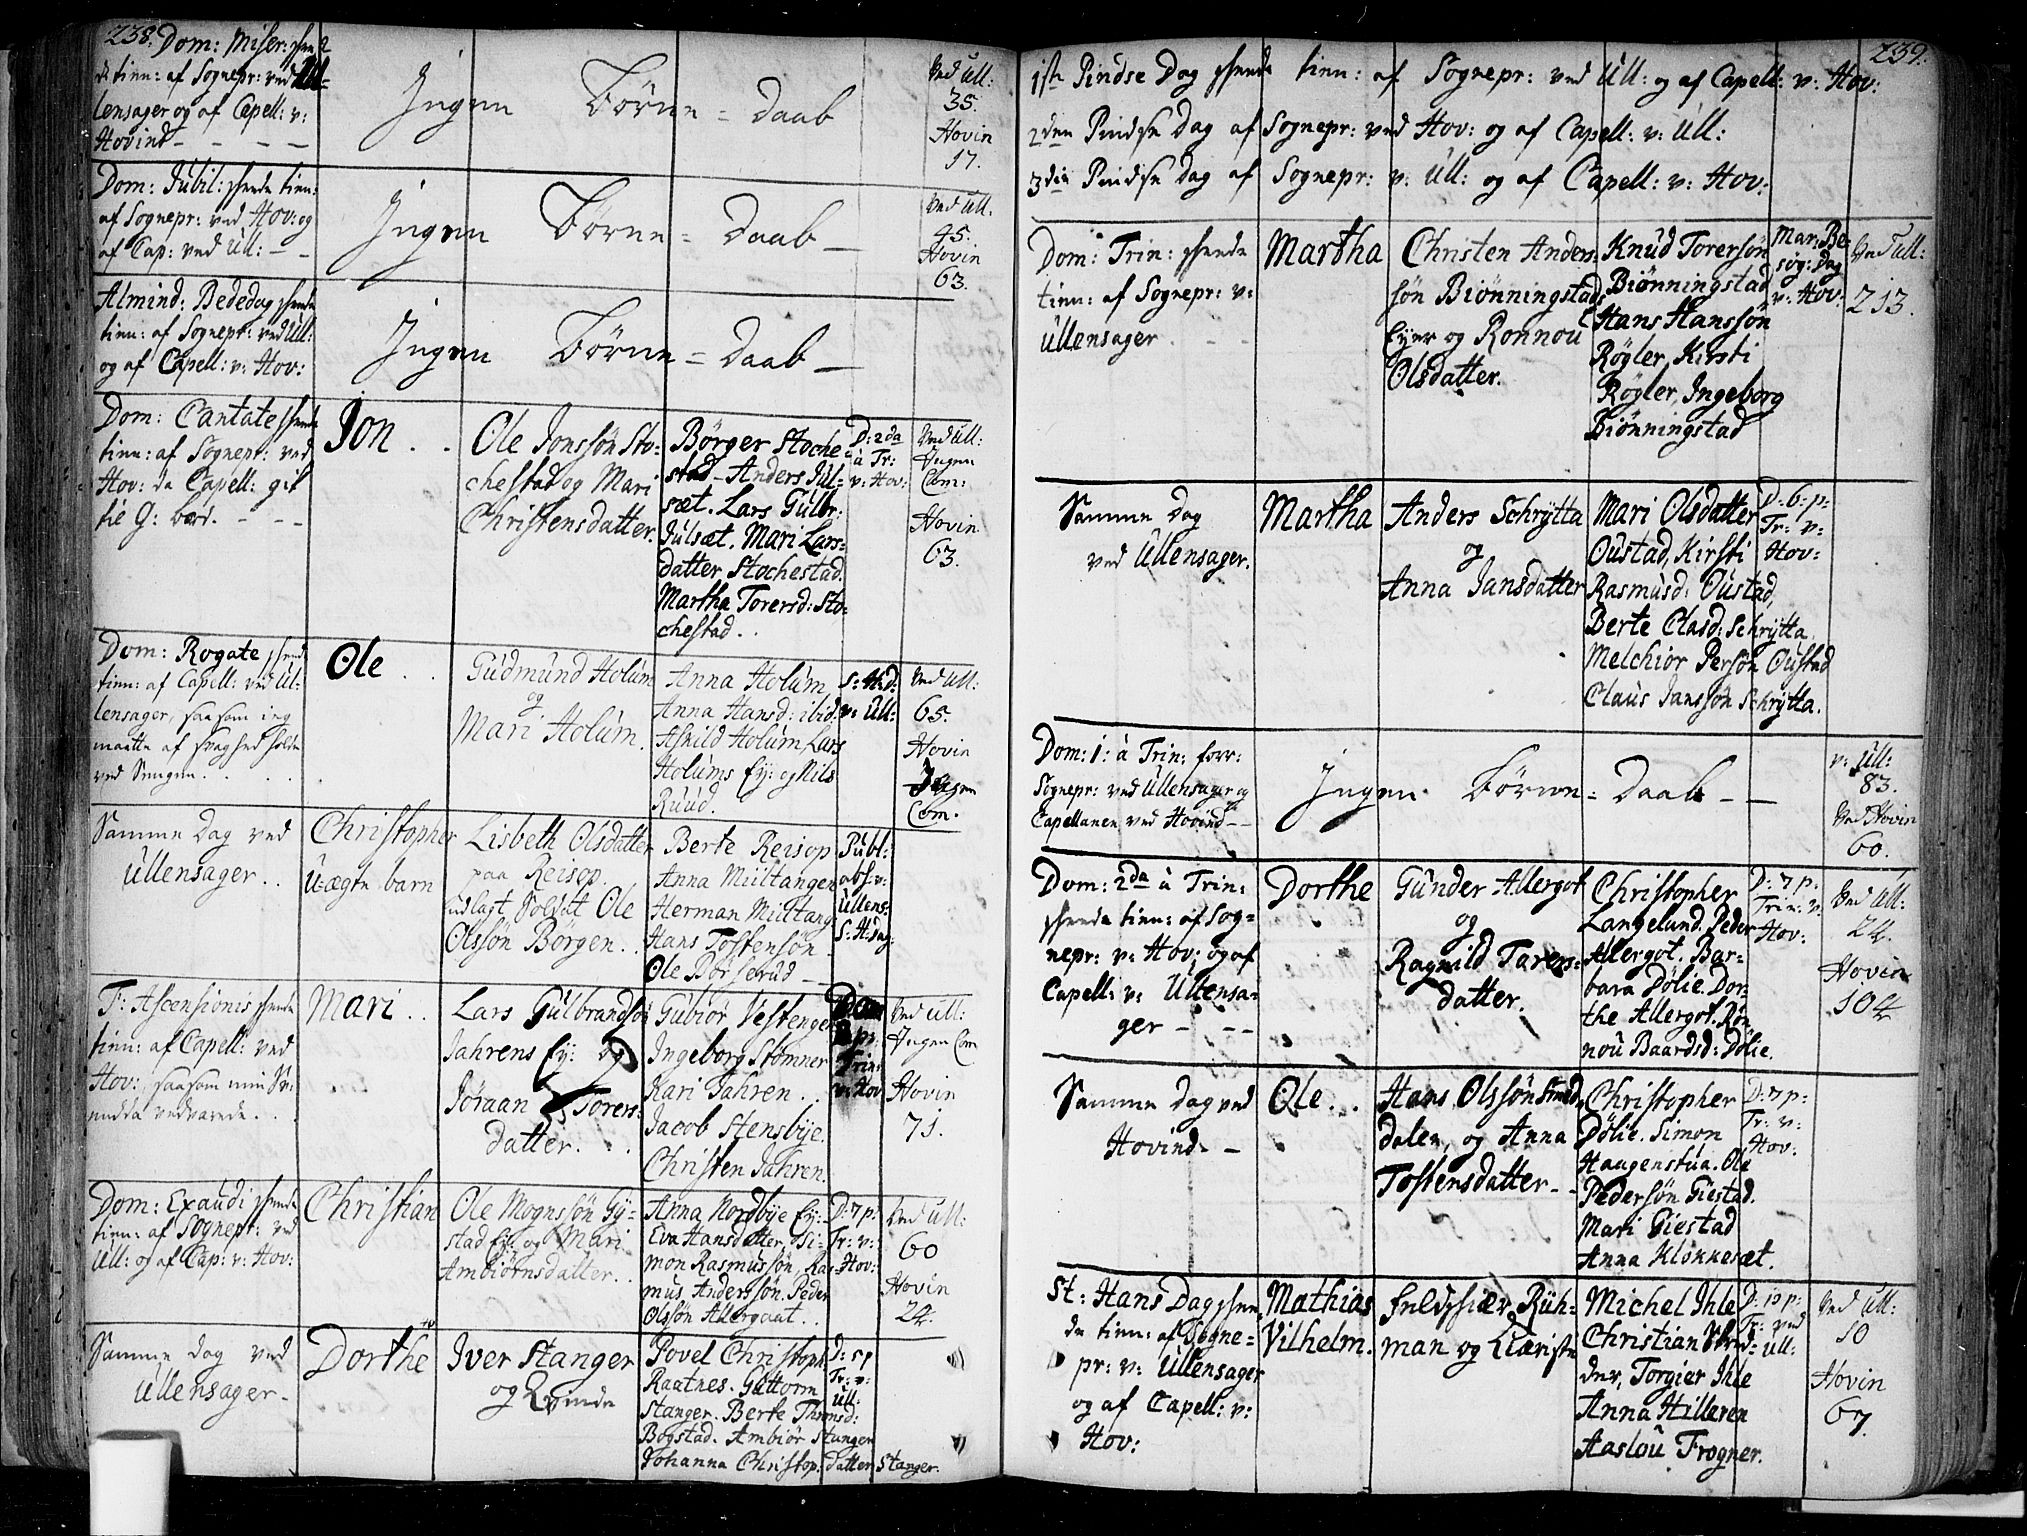 238. Dom: Miser: skeede
tien: af Sognepr: ved Ul-
lensager og af Capell: v:
Hovind - - - -
Ingen Børne = Daab
Ved Ull:
35.
Hovin
17.
Dom: Jubil: skeede tien:
af Sognepr: ved Hov: og
af Cap: ved Ull: - -
Ingen Børne = Daab -
Ved Ull.
45.
Hovin
63.
Almind: Bededag skeede
tien: af Sognepr: ved Ull:
og af Capell: v: Hov:
Ingen Børne = Daab -
Dom: Cantate skeede
tien: af Sognepr: ved
Hov: da Capell: gik
til G: bord. - - -
Jon . .
Ole Jonssøn Sto-
chestad og Mari
Christensdatter.
Børger Stoche-
stad - Anders Jul-
sæt. Lars Gulbr:
Julsæt. Mari Lars-
datter Stochestad.
Martha Torersd: Sto-
chestad . .
D: 2da
à Tr:
v: Hov:
Ved Ull:
Ingen
Com:
Hovin
63.
Dom: Rogate skeede
tien: af Capell: ved Ul-
lensager, saasom jeg
maatte af svaghed holde
ved Sengen . . . .
Ole . .
Gudmund Holum
og
Mari Holum.
Anna Holum
Anna Hansd: ibid.
Asnild Holum Lars
Holums Ey: og Nils
Ruud.
S: H: D:
v: Ull:
Ved Ull:
65.
Hovin
Ingen
Com.
Samme Dag ved
Ullensager . .
Christopher
U-ægte barn
Lisbeth Olsdatter
paa Reisop.
udlagt Soldat Ole
Olssøn Børgen . .
Berte Reisop
Anna Miiltangen
Herman Miiltang
Hans Tostensøn
Ole Borserud
Publ:
abs: v:
Ullens:
S: H: Dag:
F: Ascensionis skeede
tien: af Capell: ved
Hov: saasom min
vedvarede . .
Mari . .
Lars Gulbrandsøn
Jahrens Ey: og
Jøraan Torers-
datter. . .
Gubiør Vestenger
Ingeborg Stomner
Kari Jahren . .
Jacob Stensbye.
Christen Jahren.
Dom
p:
Trin:
v: Hov
Ved Ull:
Ingen Com
Hovin
71.
Dom: Exaudi skeede
tien: af Sognepr: ved
Ull: og af Cap: v: Hov:
Christian
Ole Mognssøn Gy-
stad Ey: og Mari
Ambiørnsdatter . .
Anna Nordbye Ey:
Eva Hansdatter, Si-
mon Rasmussøn, Ras-
mus Anderssøn. Peder
Olssøn Allergaat . .
D: 7 p:
Tr: v:
Hov:
Ved Ull:
60
Hovin
24.
Samme Dag ved
Ullensager -
Dorthe
Iver Stanger
og Qvinde
Povel Christoph:
Raatnes. Guttorm
Stanger. Berte Thomsd:
Bogstad. Ambiør Stanger
Johanna Christop: datter Stanger.
D: 5 p
Tr: v:
Ull:
239.
1ste Pindse Dag skeede tien: af Sognepr: ved Ull: og af Capell: v: Hov:
2den Pindse Dag af Sognepr: ved Hov: og af Capell: v: Ull:
3die Pindse Dag af Sognepr: v: Ull: og af Capell: v: Hov:
Dom: Trin: skeede
tien: af Sognepr: v:
Ullensager . - -
Martha
Christen Anders-
søn Biønningstads
Eyer og Ronnou
Olsdatter.
Knud Torersøn
Biønningstad
Hans Hanssøn
Røgler, Kirsti
Røgler, Ingeborg
Biønningstad
Mar: Be-
søg: Dag
v: Hov:
Ved Ull:
213.
Samme Dag
ved Ullensager.
Martha
Anders Schrytta
og
Anna Jansdatter
Mari Olsdatter
Oustad, Kirsti
Rasmusd: Oustad,
Berte Clasd: Schrytta
Melchior Persøn Oustad
Claus Janssøn Schrytta.
D: 6: p:
Tr: v:
Hov:
Dom: 1: à Trin: forr:
Sognepr: ved Ullensager og
Capellanen ved Hovind - -
Ingen Børne = Daab - -
v: Ull:
83.
Ved Hovin
60.
Dom: 2da à Trin:
skeede tien: af Sog-
nepr: v: Hov: og af
Capell: v: Ullensa-
ger - - -
Dorthe
Gunder Allergot
og
Ragnild Tarers-
datter.
Christopher
Langelund. Peder
Allergot. Bar-
bara Dølie. Dor-
the Allergot. Røn-
nou Baardsd: Dølie.
D: 7 p:
Trin: v:
Hov:
Ved Ull:
24.
Hovin
104
Samme Dag ved
Hovind - -
Ole . .
Hans Olssøn Smed-
dalen, og Anna
Tostensdatter - -
Christopher
Dølie. Simon
Haugenstua. Ole
Pedersøn Giestad.
Mari Giestad
Anna Klokkesæt.
D: 7 p:
Tr: v:
Hov:
St: Hans Dag skee-
de tien: af Sogne-
pr: v: Ullensager
og af Capell: v:
Hov:
Mathias
Vilhelm.
Feldskiær Rüh-
man og Kiæriste
Michel Ihle
Christian
Torgier Ihle
Anna Hilleren
Aaslou Frogner.
D: 10 p:
Tr: ved
Ull:
Ved Ull:
10
Hovin
67.